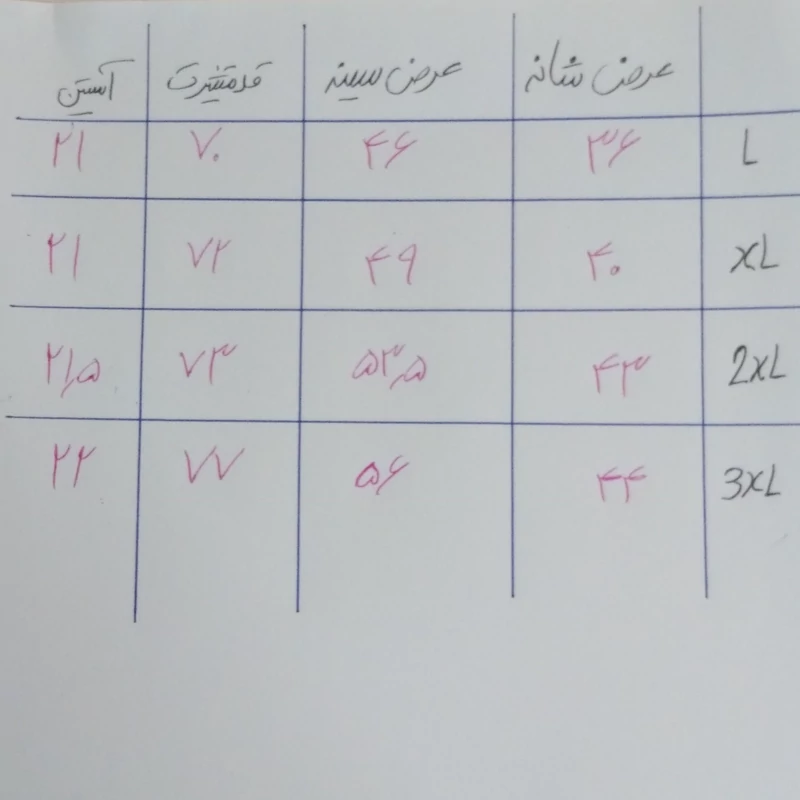 عرض شانه عرض سینه قد تیشرت آستین
L ۳۶ ۴۶ ۷۰ ۲۱
XL ۴۰ ۴۹ ۷۲ ۲۱
2XL ۴۳ ۵۳٫۵ ۷۳ ۲۱٫۵
3XL ۴۴ ۵۶ ۷۷ ۲۲